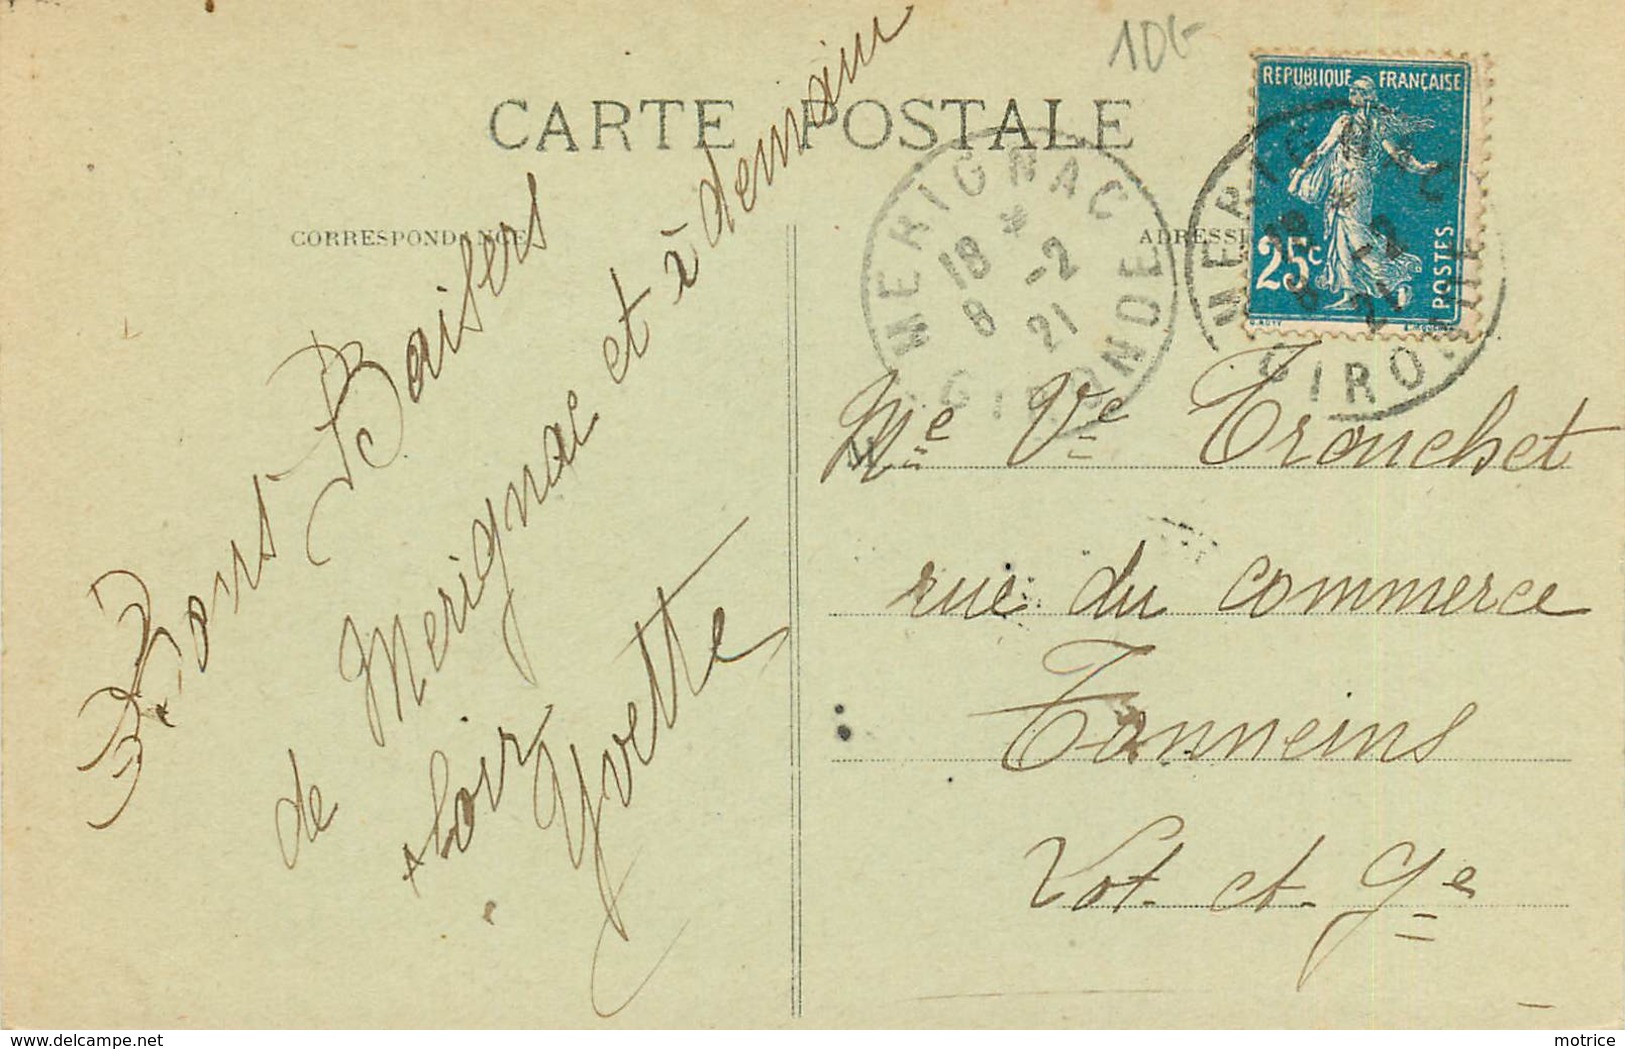 10€
CARTE POSTALE
CORRESPONDANCE
ADRESSE
REPUBLIQUE FRANÇAISE
25c
POSTES
MERIGNAC
18 * 8 -2 21
GIRONDE
MERIGNAC
18 * 8 -2 21
GIRONDE
Bons Baisers
de Merignac et à demain
soir
Yvette
Me Ve Trouchet
rue du commerce
Tonneins
Lot. et. Ge
delcampe.net
motrice